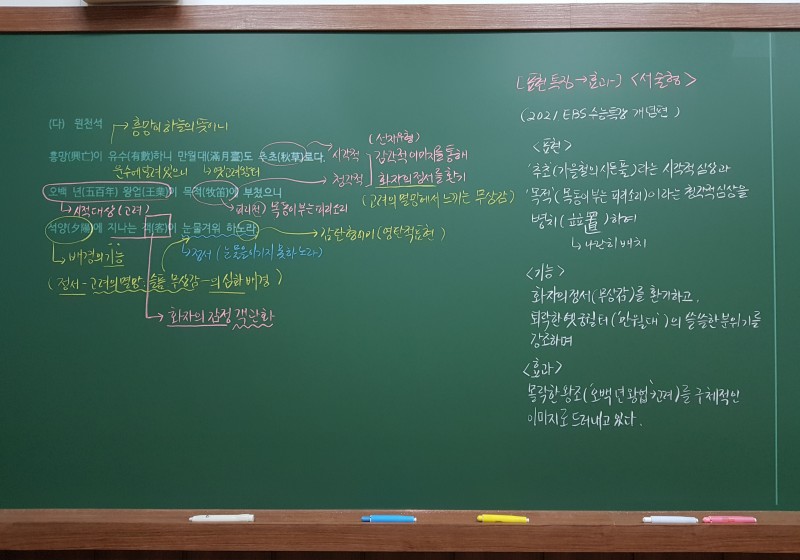 (다) 원천석
흥망이 하늘의 뜻이니
흥망(興亡)이 유수(有數)하니 만월대(滿月臺)도 추초(秋草)로다.
운수에 달려 있으니
옛 고려 왕터
오백 년(五百年) 왕업(王業)이 목적(牧笛)에 부쳤으니
시적대상(고려)
피리(전) 목동이 부는 피리소리
석양(夕陽)에 지나는 객(客)이 눈물겨워 하노라
배경의 기능
정서 (눈물을 이기지 못하노라)
감탄형 어미 (영탄적 표현)
(정서-고려의 멸망: 슬픔 무상감-의 심화 배경)
화자의 감정 객관화
시각적
청각적
(선지유형)
감각적 이미지를 통해
화자의 정서를 환기
(고려의 멸망에서 느끼는 무상감)
[표현 특징→효과] <서술형>
(2021 EBS 수능특강 개념편)
<표현>
'추초'(가을철의 시든 풀)라는 시각적 심상과
'목적'(목동이 부는 피리소리)이라는 청각적 심상을
병치(竝置)하여
나란히 배치
<기능>
화자의 정서(무상감)를 환기하고,
퇴락한 옛 궁궐터('만월대')의 쓸쓸한 분위기를
강조하며
<효과>
몰락한 왕조('오백 년 왕업':고려)를 구체적인
이미지로 드러내고 있다.